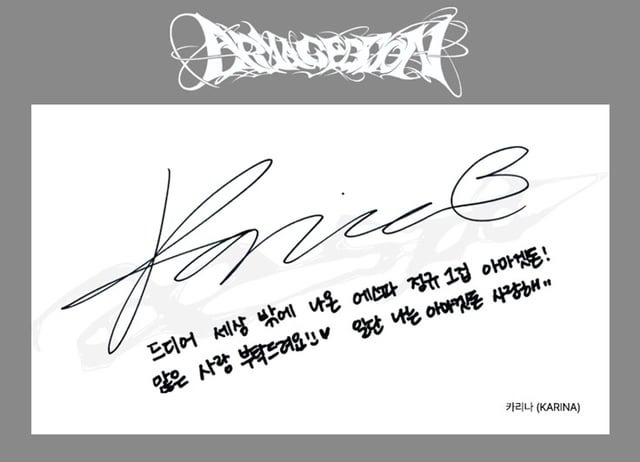 ARMAGEDDON
Karina
드디어 세상 밖에 나온 에스파 정규 1집 아마겟돈!
많은 사랑 부탁드려요!! ♥ 일단 나는 아마겟돈 사랑해"
카리나 (KARINA)